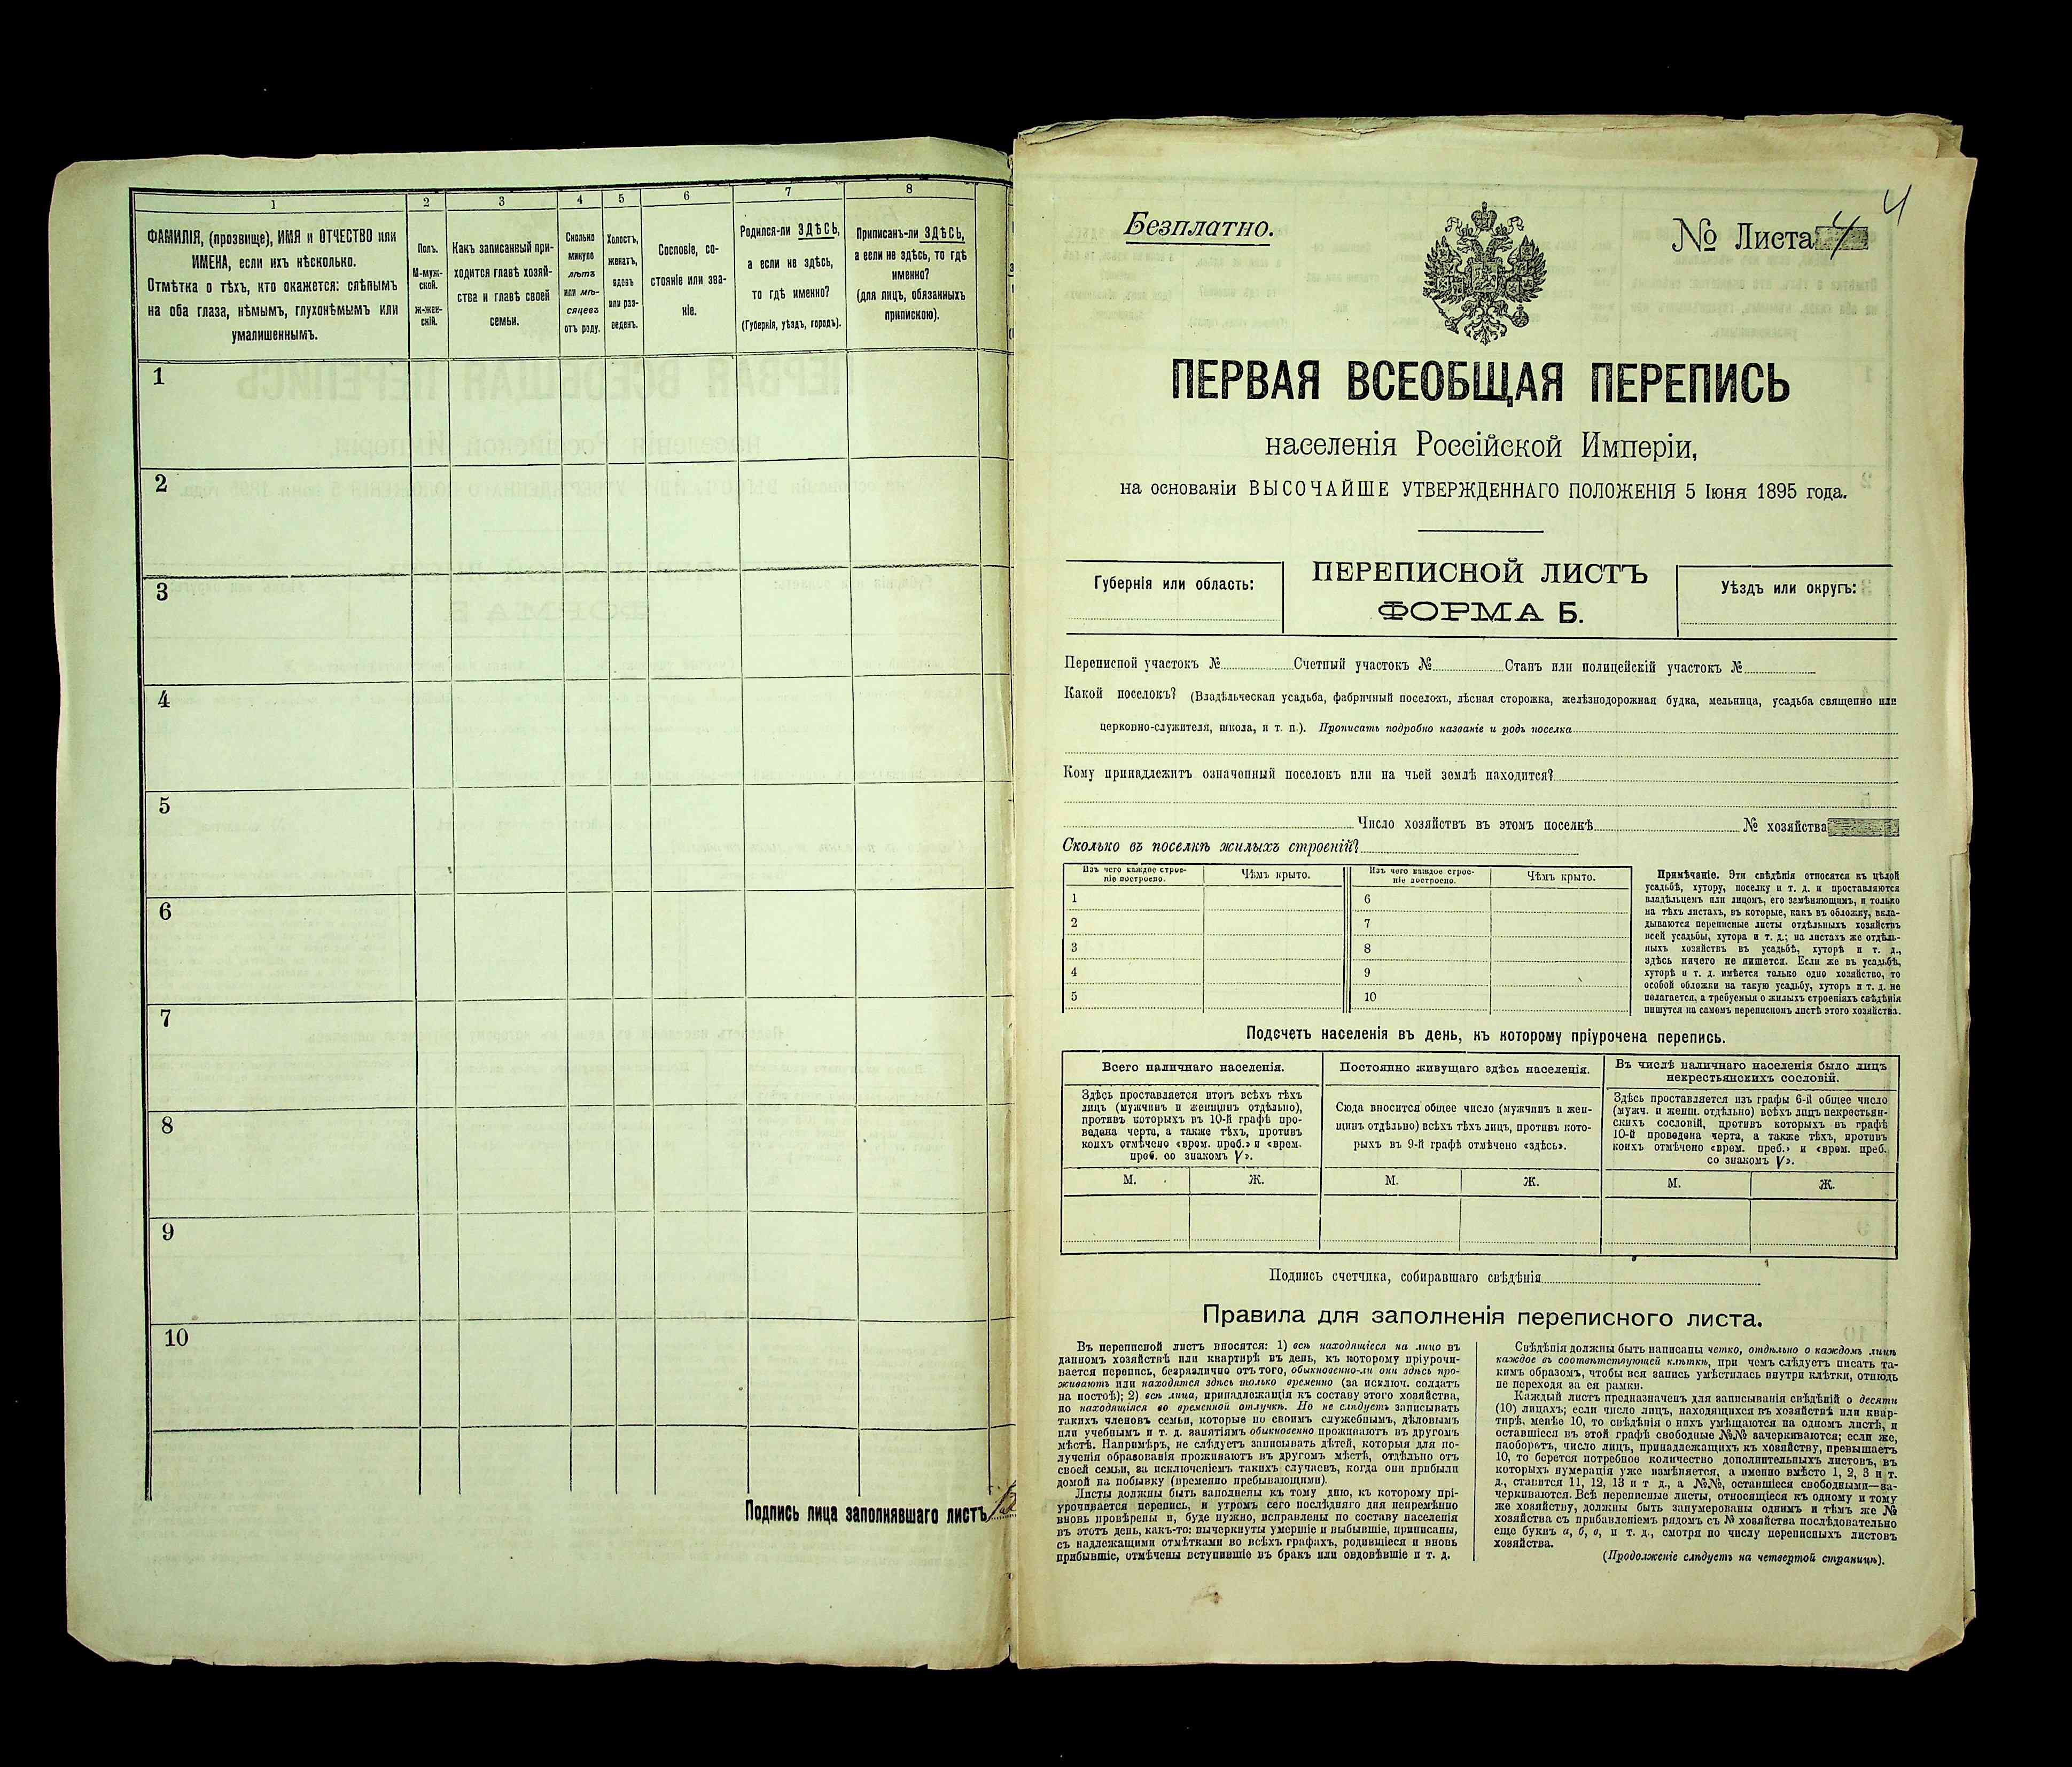 1
ФАМИЛІЯ, (прозвище), ИМЯ и ОТЧЕСТВО или
ИМЕНА, если ихъ нѣсколько.
Отмѣтка о тѣхъ, кто окажется: слѣпымъ
на оба глаза, нѣмымъ, глухонѣмымъ или
умалишеннымъ.
2
Полъ.
М-муж-
ской.
Ж-жен-
скій.
3
Какъ записанный при-
ходится главѣ хозяй-
ства и главѣ своей
семьи.
4
Сколько
минуло
лѣтъ
или мѣ-
сяцевъ
отъ роду.
5
Холостъ,
женатъ,
вдовъ
или раз-
веденъ.
6
Сословіе, со-
стояніе или зва-
ніе.
7
Родился-ли ЗДѢСЬ,
а если не здѣсь,
то гдѣ именно?
(Губернія, уѣздъ, городъ).
8
Приписанъ-ли ЗДѢСЬ,
а если не здѣсь, то гдѣ
именно?
(для лицъ, обязанныхъ
припискою).
1
2
3
4
5
6
7
8
9
10
Подпись лица заполнявшаго листъ
4
Безплатно.
№ Листа 4
ПЕРВАЯ ВСЕОБЩАЯ ПЕРЕПИСЬ
населенія Россійской Имперіи,
на основаніи ВЫСОЧАЙШЕ УТВЕРЖДЕННАГО ПОЛОЖЕНІЯ 5 Іюня 1895 года.
Губернія или область:
ПЕРЕПИСНОЙ ЛИСТЪ
ФОРМА Б.
Уѣздъ или округъ:
Переписной участокъ № Счетный участокъ № Станъ или полицейскій участокъ №
Какой поселокъ? (Владѣльческая усадьба, фабричный поселокъ, лѣсная сторожка, желѣзнодорожная будка, мельница, усадьба священно или
церковно-служителя, школа, и т. п.). Прописать подробно названіе и родъ поселка
Кому принадлежитъ означенный поселокъ или на чьей землѣ находится?
Число хозяйствъ въ этомъ поселкѣ № хозяйства
Сколько въ поселкѣ жилыхъ строеній?
Изъ чего каждое строе-
ніе построено.
Чѣмъ крыто.
Изъ чего каждое строе-
ніе построено.
Чѣмъ крыто.
1
2
3
4
5
6
7
8
9
10
Примѣчаніе. Эти свѣдѣнія относятся къ цѣлой
усадьбѣ, хутору, поселку и т. д. и проставляются
владѣльцемъ или лицомъ, его замѣняющимъ, и только
на тѣхъ листахъ, въ которые, какъ въ обложку, вкла-
дываются переписные листы отдѣльныхъ хозяйствъ
всей усадьбы, хутора и т. д.; на листахъ же отдѣль-
ныхъ хозяйствъ въ усадьбѣ, хуторѣ и т. д.,
здѣсь ничего не пишется. Если же въ усадьбѣ,
хуторѣ и т. д. имѣется только одно хозяйство, то
особой обложки на такую усадьбу, хуторъ и т. д. не
полагается, а требуемыя о жилыхъ строеніяхъ свѣдѣнія
пишутся на самомъ переписномъ листѣ этого хозяйства.
Подсчетъ населенія въ день, къ которому пріурочена перепись.
Всего наличнаго населенія.
Здѣсь проставляется итогъ всѣхъ тѣхъ
лицъ (мужчинъ и женщинъ отдѣльно),
противъ которыхъ въ 10-й графѣ про-
ведена черта, а также тѣхъ, противъ
коихъ отмѣчено «врем. преб.» и «врем.
преб. со знакомъ V».
М.
Ж.
Постоянно живущаго здѣсь населенія.
Сюда вносится общее число (мужчинъ и жен-
щинъ отдѣльно) всѣхъ тѣхъ лицъ, противъ кото-
рыхъ въ 9-й графѣ отмѣчено «здѣсь».
М.
Ж.
Въ числѣ наличнаго населенія было лицъ
некрестьянскихъ сословій.
Здѣсь проставляется изъ графы 6-й общее число
(мужч. и женщ. отдѣльно) всѣхъ лицъ некрестьян-
скихъ сословій, противъ которыхъ въ графѣ
10-й проведена черта, а также тѣхъ, противъ
коихъ отмѣчено «врем. преб.» и «врем. преб.
со знакомъ V».
М.
Ж.
Подпись счетчика, собиравшаго свѣдѣнія
Правила для заполненія переписного листа.
Въ переписной листъ вносятся: 1) всѣ находящіеся на лицо въ
данномъ хозяйствѣ или квартирѣ въ день, къ которому пріурочи-
вается перепись, безразлично отъ того, обыкновенно-ли они здѣсь про-
живаютъ или находятся здѣсь только временно (за исключ. солдатъ
на постоѣ); 2) всѣ лица, принадлежащія къ составу этого хозяйства,
но находящіяся во временной отлучкѣ. Но не слѣдуетъ записывать
такихъ членовъ семьи, которые по своимъ служебнымъ, дѣловымъ
или учебнымъ и т. д. занятіямъ обыкновенно проживаютъ въ другомъ
мѣстѣ. Напримѣръ, не слѣдуетъ записывать дѣтей, которыя для по-
лученія образованія проживаютъ въ другомъ мѣстѣ, отдѣльно отъ
своей семьи, за исключеніемъ такихъ случаевъ, когда они прибыли
домой на побывку (временно пребывающими).
Листы должны быть заполнены къ тому дню, къ которому прі-
урочивается перепись, и утромъ сего послѣдняго дня непремѣнно
вновь провѣрены и, буде нужно, исправлены по составу населенія
въ этотъ день, какъ-то: вычеркнуты умершіе и выбывшіе, приписаны,
съ надлежащими отмѣтками во всѣхъ графахъ, родившіеся и вновь
прибывшіе, отмѣчены вступившіе въ бракъ или овдовѣвшіе и т. д.
Свѣдѣнія должны быть написаны четко, отдѣльно о каждомъ лицѣ
каждое въ соотвѣтствующей клѣткѣ, при чемъ слѣдуетъ писать та-
кимъ образомъ, чтобы вся запись умѣстилась внутри клѣтки, отнюдь
не переходя за ея рамки.
Каждый листъ предназначенъ для записыванія свѣдѣній о десяти
(10) лицахъ; если число лицъ, находящихся въ хозяйствѣ или квар-
тирѣ, менѣе 10, то свѣдѣнія о нихъ умѣщаются на одномъ листѣ, и
оставшіеся въ этой графѣ свободные №№ зачеркиваются; если же,
наоборотъ, число лицъ, принадлежащихъ къ хозяйству, превышаетъ
10, то берется потребное количество дополнительныхъ листовъ, въ
которыхъ нумерація уже измѣняется, а именно вмѣсто 1, 2, 3 и т.
д., ставится 11, 12, 13 и т д., а №№, оставшіеся свободными—за-
черкиваются. Всѣ переписные листы, относящіеся къ одному и тому
же хозяйству, должны быть занумерованы однимъ и тѣмъ же №
хозяйства съ прибавленіемъ рядомъ съ № хозяйства послѣдовательно
еще буквъ а, б, в, и т. д., смотря по числу переписныхъ листовъ
хозяйства.
(Продолженіе слѣдуетъ на четвертой страницѣ).